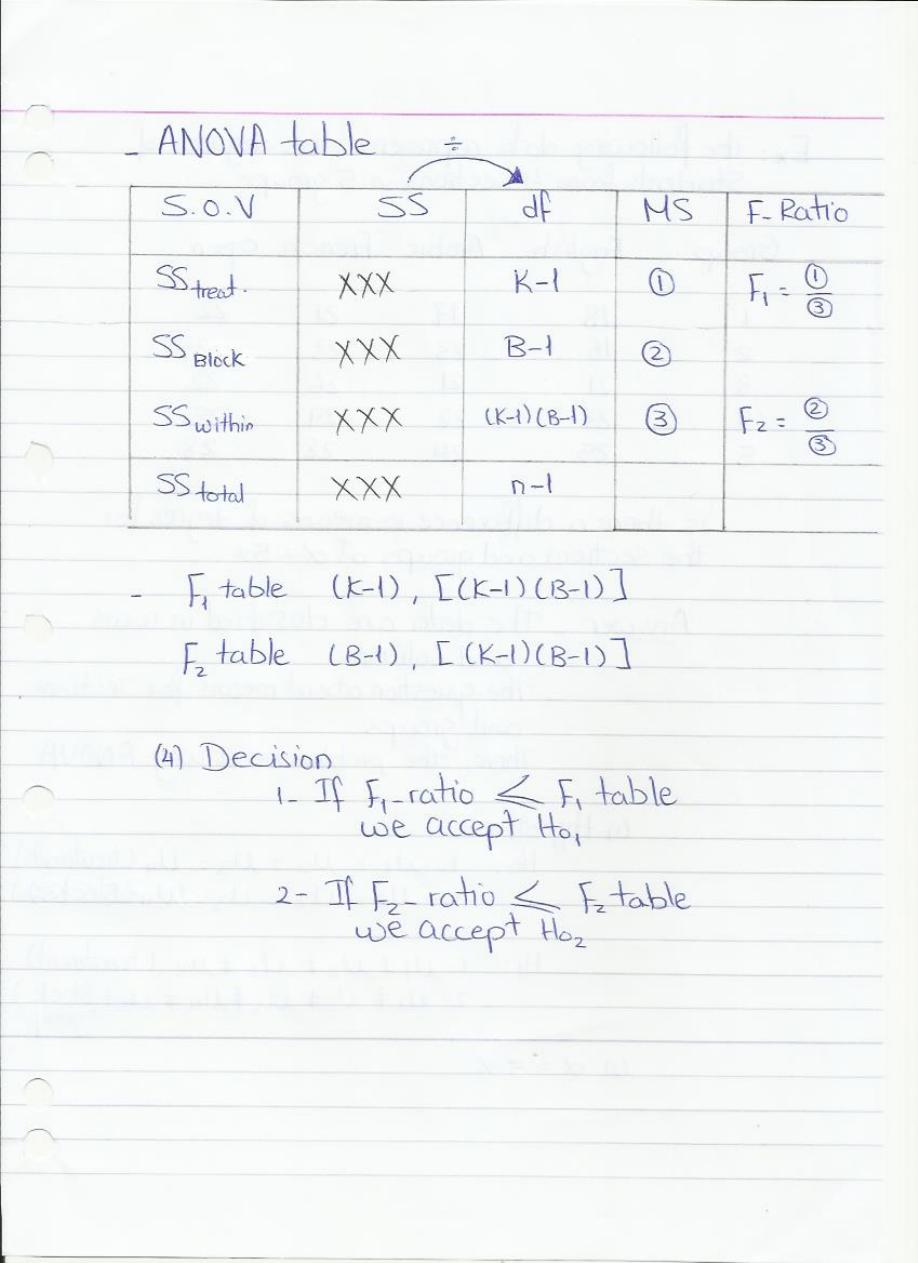 - ANOVA table ÷
S.O.V SS df MS F-Ratio
SS treat. XXX K-1 ① F₁ = ①/③
SS Block XXX B-1 ②
SS within XXX (K-1)(B-1) ③ F₂ = ②/③
SS total XXX n-1
- F₁ table (K-1), [(K-1)(B-1)]
F₂ table (B-1), [(K-1)(B-1)]
(4) Decision
1- If F₁-ratio ≤ F₁ table
we accept Ho₁
2- If F₂-ratio ≤ F₂ table
we accept Ho₂